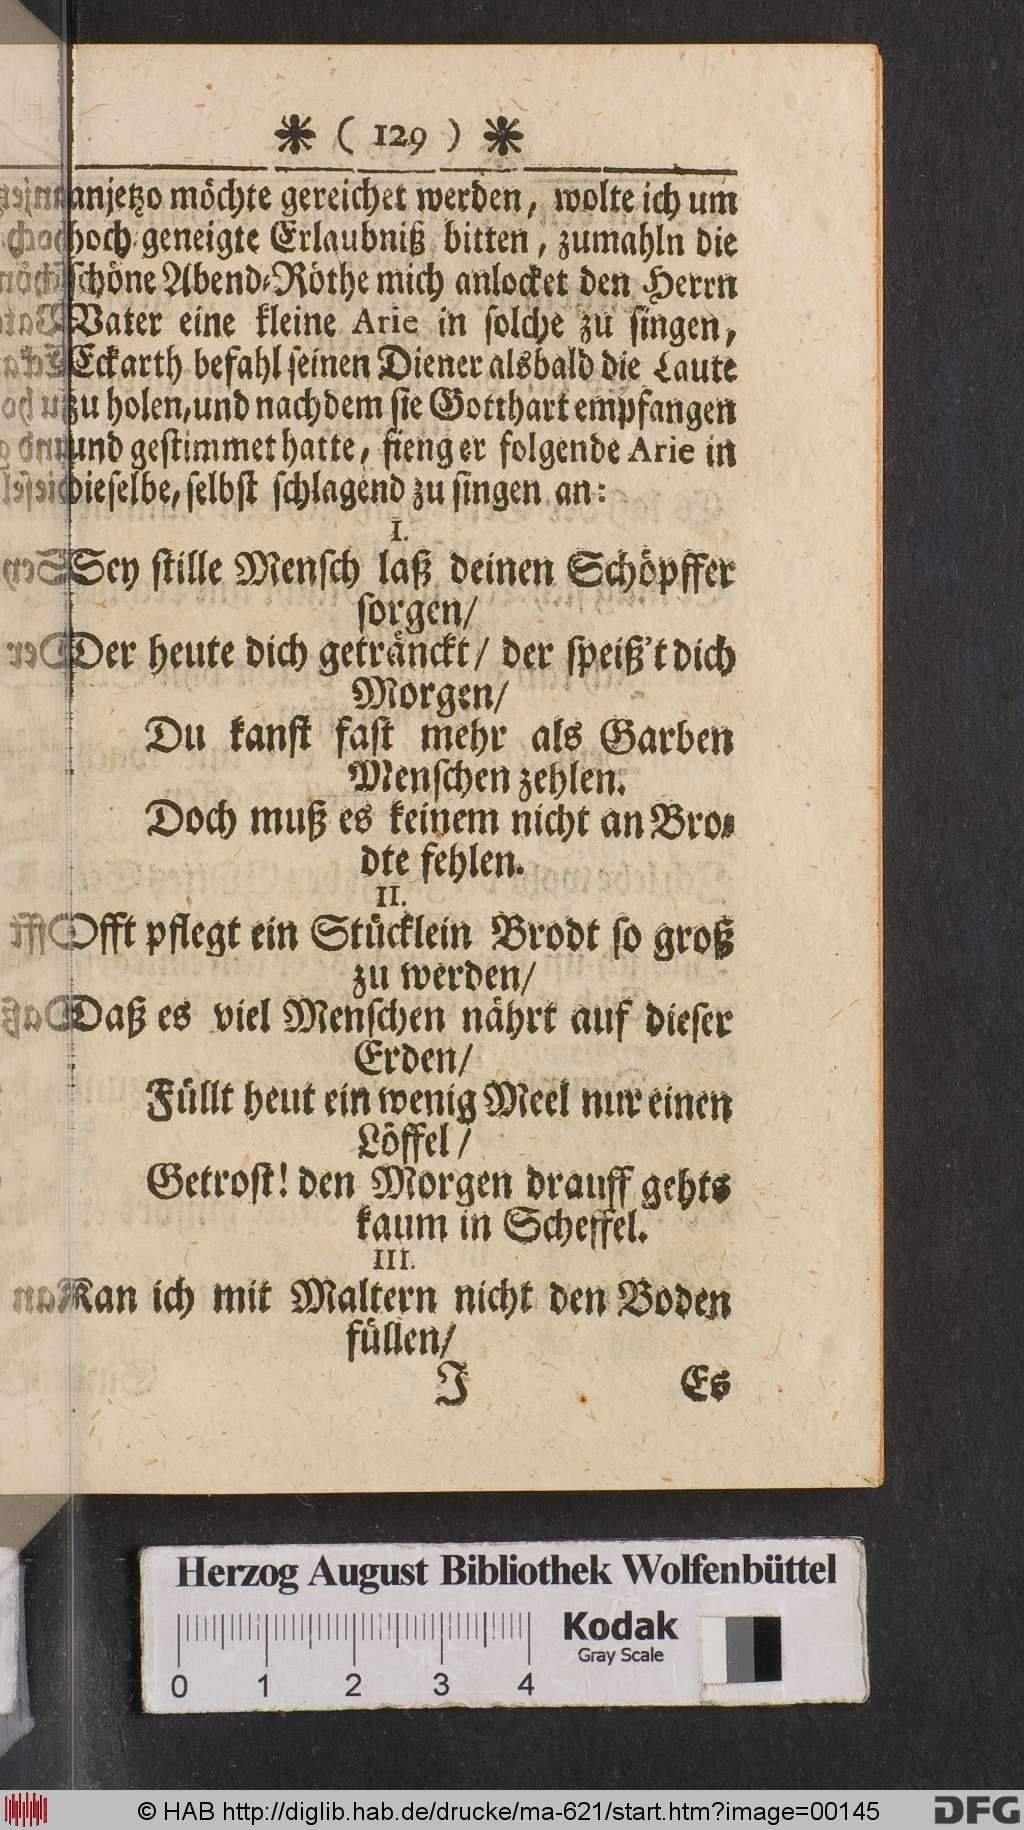 ❋ ( 129 ) ❋
anjetzo möchte gereichet werden, wolte ich um
hoch-geneigte Erlaubniß bitten, zumahln die
schöne Abend-Röthe mich anlocket den Herrn
Vater eine kleine Arie in solche zu singen,
Eckarth befahl seinen Diener alsbald die Laute
zu holen, und nachdem sie Gotthart empfangen
und gestimmet hatte, fieng er folgende Arie in
dieselbe, selbst schlagend zu singen an:
I.
Sey stille Mensch laß deinen Schöpffer
sorgen/
Der heute dich getränckt/ der speiß't dich
Morgen/
Du kanst fast mehr als Garben
Menschen zehlen.
Doch muß es keinem nicht an Bro-
dte fehlen.
II.
Offt pflegt ein Stücklein Brodt so groß
zu werden/
Daß es viel Menschen nährt auf dieser
Erden/
Füllt heut ein wenig Meel nur einen
Löffel/
Getrost! den Morgen drauff gehts
kaum in Scheffel.
III.
Kan ich mit Maltern nicht den Boden
füllen/
J Es
Herzog August Bibliothek Wolfenbüttel
Kodak
Gray Scale
0 1 2 3 4
© HAB http://diglib.hab.de/drucke/ma-621/start.htm?image=00145
DFG